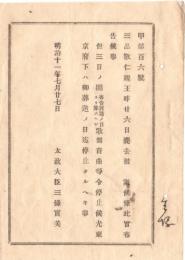 甲第百六號
三品敬仁親王昨廿六日薨去被遊候條此旨布
告候事
但三日ノ間歌舞音曲等令停止候尤東
京府下ハ御葬送ノ日迄停止タルヘキ事
明治十一年七月廿七日
太政大臣三條實美